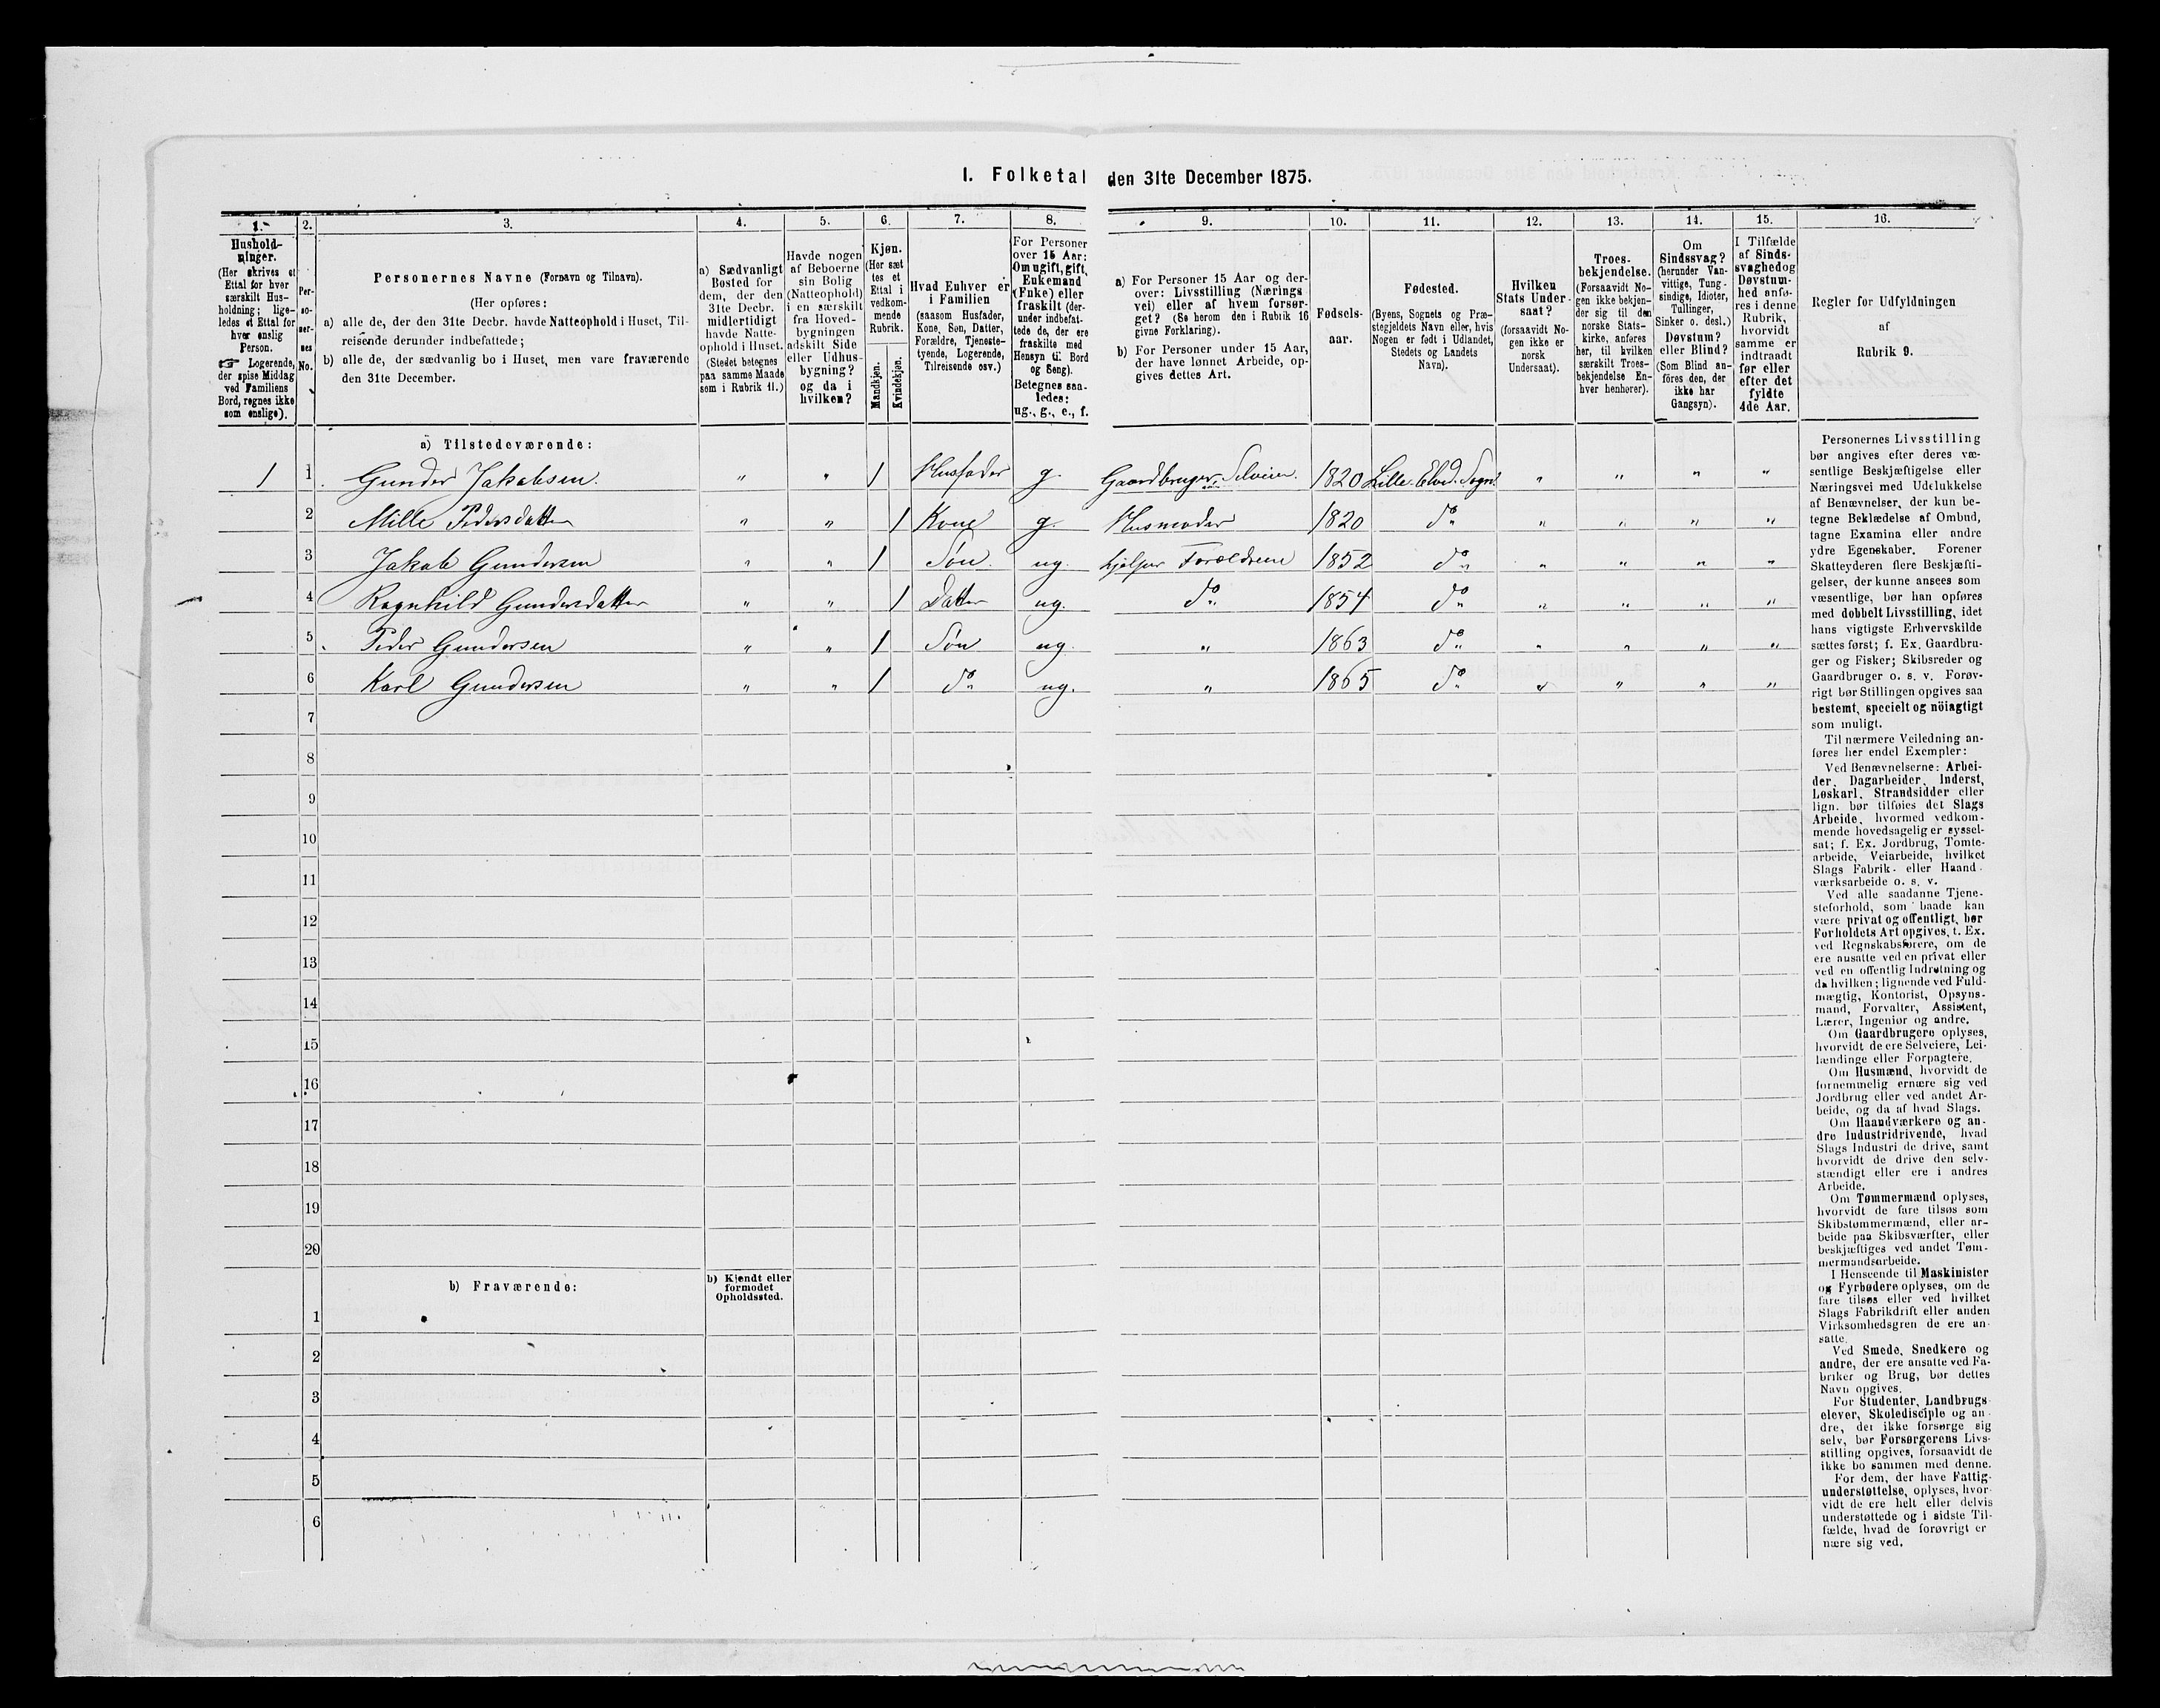 I. Folketal den 31te December 1875.
1.
Hushold-
ninger.
(Her skrives et
Ettal for hver
særskilt Hus-
holdning; lige-
ledes et Ettal for
hver enslig
Person.
☞ Logerende,
der spise Middag
ved Familiens
Bord, regnes ikke
som enslige).
2.
Per-
so-
ner-
nes
No.
3.
Personernes Navne (Fornavn og Tilnavn).
(Her opføres:
a) alle de, der den 31te Decbr. havde Natteophold i Huset, Til-
reisende derunder indbefattede;
b) alle de, der sædvanlig bo i Huset, men vare fraværende
den 31te December.
4.
a) Sædvanligt
Bosted for
dem, der den
31te Decbr.
midlertidigt
havde Natte-
ophold i Huset.
(Stedet betegnes
paa samme Maade
som i Rubrik 11.)
5.
Havde nogen
af Beboerne
sin Bolig
(Natteophold)
i en særskilt
fra Hoved-
bygningen
adskilt Side
eller Udhus-
bygning?
og da i
hvilken?
6.
Kjøn.
(Her sæt
tes et
Ettal i
vedkom-
mende
Rubrik.
Mandkjøn.
Kvindekjøn.
7.
Hvad Enhver er
i Familien
(saasom Husfader,
Kone, Søn, Datter,
Forældre, Tjeneste-
tyende, Logerende,
Tilreisende osv.)
8.
For Personer
over 15 Aar:
Om ugift, gift,
Enkemand
(Enke) eller
fraskilt (der-
under indbefat-
tede de, der ere
fraskilte med
Hensyn til Bord
og Seng).
Betegnes saa-
ledes:
ug., g., e., f.
9.
a) For Personer 15 Aar og der-
over: Livsstilling (Nærings
vei) eller af hvem forsør-
get? (Se herom den i Rubrik 16
givne Forklaring).
b) For Personer under 15 Aar,
der have lønnet Arbeide, op-
gives dettes Art.
10.
Fødsels-
aar.
11.
Fødested.
(Byens, Sognets og Præ-
stegjeldets Navn eller, hvis
Nogen er født i Udlandet,
Stedets og Landets
Navn).
12.
Hvilken
Stats Under-
saat?
(forsaavidt No-
gen ikke er
norsk
Undersaat).
13.
Troes-
bekjendelse.
(Forsaavidt No-
gen ikke bekjen-
der sig til den
norske Stats-
kirke, anføres
her, til hvilken
særskilt Troes-
bekjendelse En-
hver henhører).
14.
Om
Sindssvag?
(herunder Van-
vittige, Tung-
sindige, Idioter,
Tullinger,
Sinker o. desl.)
Døvstum?
eller Blind?
(Som Blind an-
föres den, der
ikke har
Gangsyn).
15.
I Tilfælde
af Sinds-
svaghed og
Døvstum-
hed anfø-
res i denne
Rubrik,
hvorvidt
samme er
indtraadt
før eller
efter det
fyldte
4de Aar.
16.
Regler for Udfyldningen
af
Rubrik 9.
a) Tilstedeværende:
1 1 Gunder Jakobsen. " " 1 Husfader g. Gaardbruger, Selveier. 1820 Lille Elvd. Sogn " " " "
2 Mille Pedersdatter " " 1 Kone g. Husmoder 1820 do " " " "
3 Jakob Gundersen " " 1 Søn. ug. hjelper Forældrene 1852 do " " " "
4 Ragnhild Gundersdatter " " 1 Datter ug. do 1854 do " " " "
5 Peder Gundersen " " 1 Søn ug. " 1863 do " " " "
6 Karl Gundersen " " 1 do ug. " 1865 do " " " "
7
8
9
10
11
12
13
14
15
16
17
18
19
20
b) Fraværende:
b) Kjendt eller
formodet
Opholdssted.
1
2
3
4
5
6
Personernes Livsstilling
bør angives efter deres væ-
sentlige Beskjæftigelse eller
Næringsvei med Udelukkelse
af Benævnelser, der kun be-
tegne Beklædelse af Ombud,
tagne Examina eller andre
ydre Egenskaber. Forener
Skatteyderen flere Beskjæfti-
gelser, der kunne ansees som
væsentlige, bør han opføres
med dobbelt Livsstilling, idet
hans vigtigste Erhvervskilde
sættes først; f. Ex. Gaardbru-
ger og Fisker; Skibsreder og
Gaardbruger o. s. v. Forøv-
rigt bør Stillingen opgives saa
bestemt, specielt og nöiagtigt
som muligt.
Til nærmere Veiledning an-
føres her endel Exempler:
Ved Benævnelserne: Arbei-
der, Dagarbeider, Inderst,
Løskarl, Strandsidder eller
lign. bør tilføies det Slags
Arbeide, hvormed vedkom-
mende hovedsagelig er syssel-
sat; f. Ex. Jordbrug, Tomte-
arbeide, Veiarbeide, hvilket
Slags Fabrik- eller Haand-
værksarbeide o. s. v.
Ved alle saadanne Tjene-
steforhold, som baade kan
være privat og offentligt, bør
Forholdets Art opgives, t. Ex.
ved Regnskabsførere, om de
ere ansatte ved en privat eller
ved en offentlig Indretning og
da hvilken; lignende ved Fuld-
mægtig, Kontorist, Opsyns-
mand, Forvalter, Assistent,
Lærer, Ingeniør og andre.
Om Gaardbrugere oplyses,
hvorvidt de ere Selveiere, Lei-
lændinge eller Forpagtere.
Om Husmænd, hvorvidt de
fornemmelig ernære sig ved
Jordbrug eller ved andet Ar-
beide, og da af hvad Slags.
Om Haandværkere og an-
dre Industridrivende, hvad
Slags Industri de drive, samt
hvorvidt de drive den selv-
stændigt eller ere i andres
Arbeide.
Om Tømmermænd oplyses,
hvorvidt de fare tilsøs som
Skibstømmermænd, eller ar-
beide paa Skibsværfter, eller
beskjæftiges ved andet Tøm-
mermandsarbeide.
I Henseende til Maskinister
og Fyrbødere oplyses, om de
fare tilsøs eller ved hvilket
Slags Fabrikdrift eller anden
Virksomhedsgren de ere an-
satte.
Ved Smede, Snedkere og
andre, der ere ansatte ved Fa-
briker og Brug, bør dettes
Navn opgives.
For Studenter, Landbrugs-
elever, Skoledisciple og an-
dre, der ikke forsørge sig
selv, bør Forsørgerens Livs-
stilling opgives, forsaavidt de
ikke bo sammen med denne.
For dem, der have Fattig-
understøttelse, oplyses, hvor-
vidt de ere helt eller delvis
understøttede og i sidste Til-
fælde, hvad de forøvrigt er
nære sig ved.